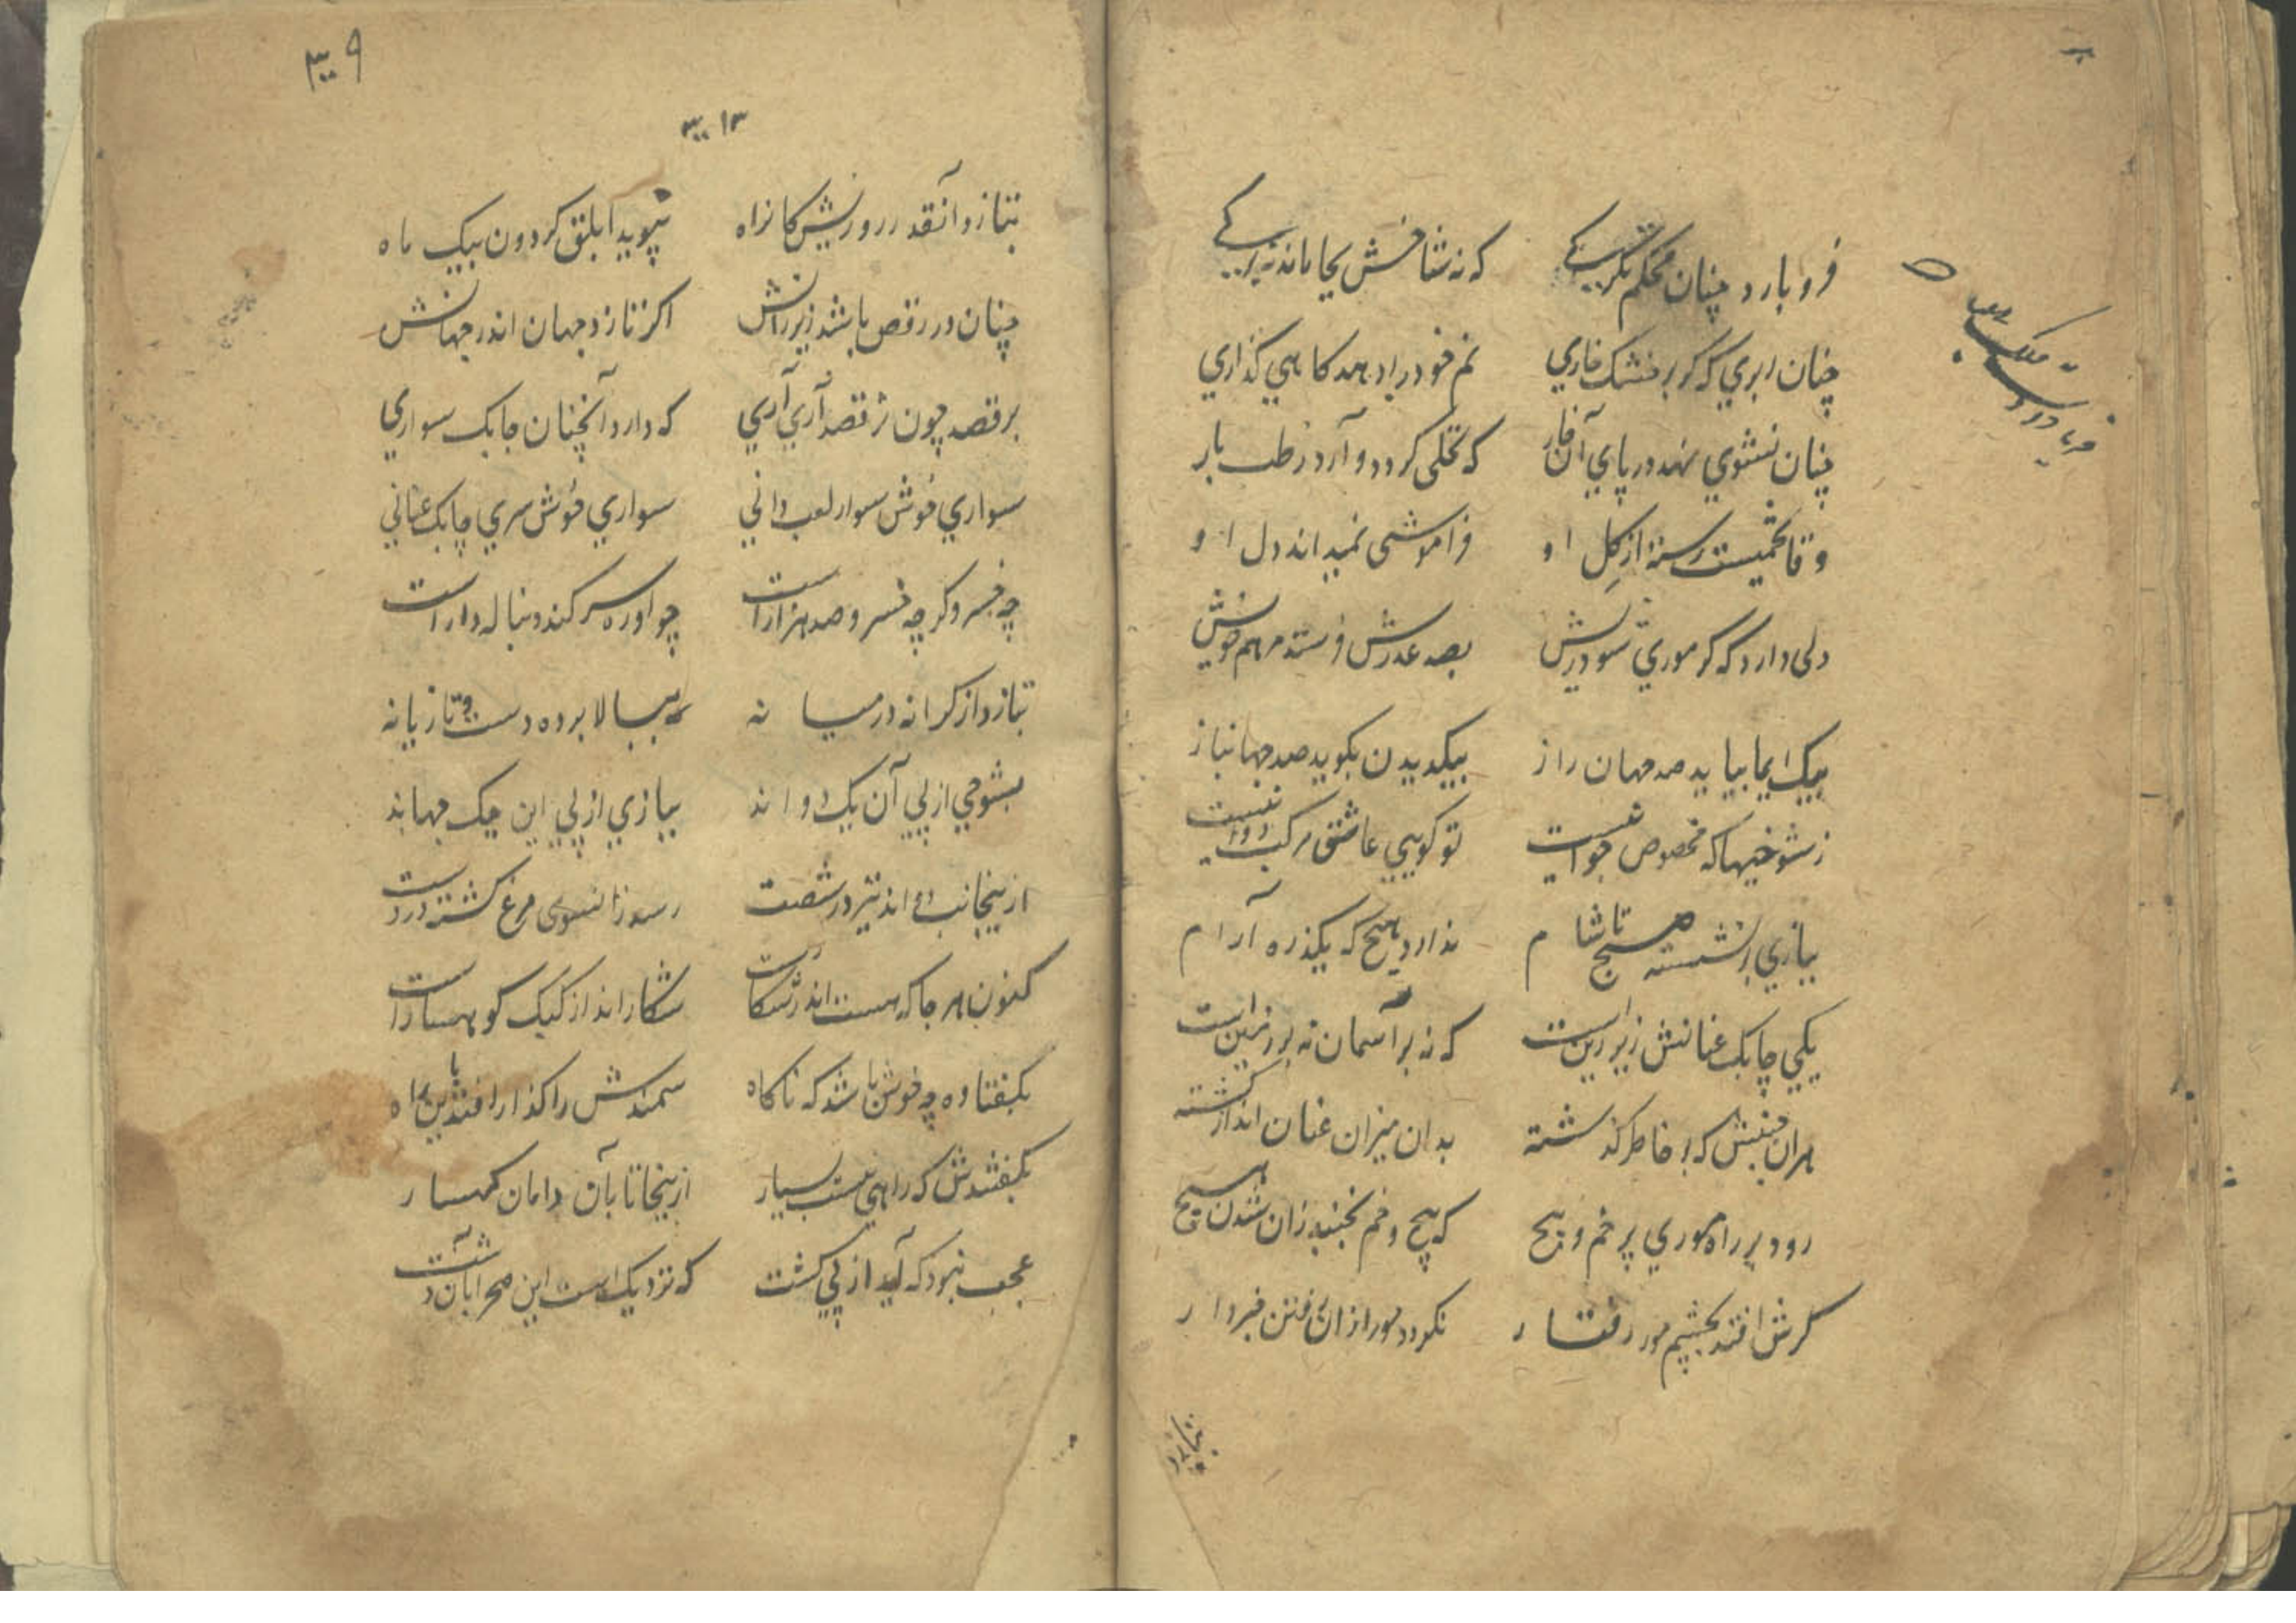 فرو بارد چنان محکم تگرگے که نه شاخش بجا ماند نه برگے
چنان ابری که گر بر خشک خاری نم خود را دهد گاهی گذاری
چنان نشوی نهد در پای آن خار که نخلی گردد و آرد رطب بار
وفا تخمیست رسته از گل او فراموشی نمیداند دل او
دلی دارد که گر موری شود ریش بصد عذرش فرستد مرهم خویش
بیک ایما بیابد صد جهان راز بیکدیدن بگوید صد جهان ناز
ز شوخیهاکه مخصوص جوانیست تو گویی عاشق مرکب دوانیست
ببازی رانشسته صبح تا شام ندارد هیچ که یکذره آرام
یکی چابک عنانش زیر زین است که نه بر آسمان نه بر زمین است
هران جنبش که بر خاطر گذشته بدان میزان عنان انداز گشته
رود بر راه موری پر خم و پیچ که پیچ و خم نجنبد زان شدن هیچ
گرش افتد بچشم مور رفتار نگردد مور ازان رفتن خبردار
بتازد
۳۰۹
بتازد آنقدر روزیش کانراه نپوید ابلق گردون بیک ماه
چنان در رقص باشد زیر رانش اگر تازد جهان اندر جهانش
برقصد چون نرقصد آری آری که دارد آنچنان چابک سواری
سواری خوش سوار لعب دانی سواری خوش سری چابک عنانی
چه خسرو گر چه خسرو صد هزار است چو او ره سر کند دنباله دار است
بتازد از کرانه در میانه ببالا برده دست و تازیانه
بشوخی از پی آن یک دواند ببازی از پی این یک جهاند
ازینجانب دواند تیر در شصت رسد زانسوی مرغ کشته در دست
کنون هر جا که هست اندر شکار است شکار انداز کبک کوهسار است
بگفتا وه چه خوش باشد که ناگاه سمندش را گذار افتد باین راه
بگفتندش که راهی نیست بسیار ازینجا تا بآن دامان کهسار
عجب نبود که آید از پی گشت که نزدیک است این صحرا بآن دشت